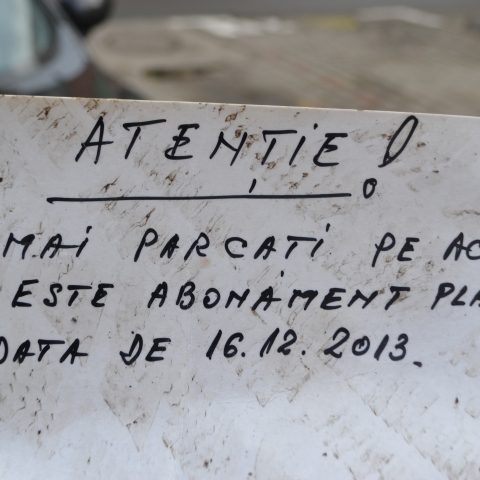 ATENȚIE!
MAI PARCATI PE AC
ESTE ABONAMENT PLA
DATA DE 16.12.2013.